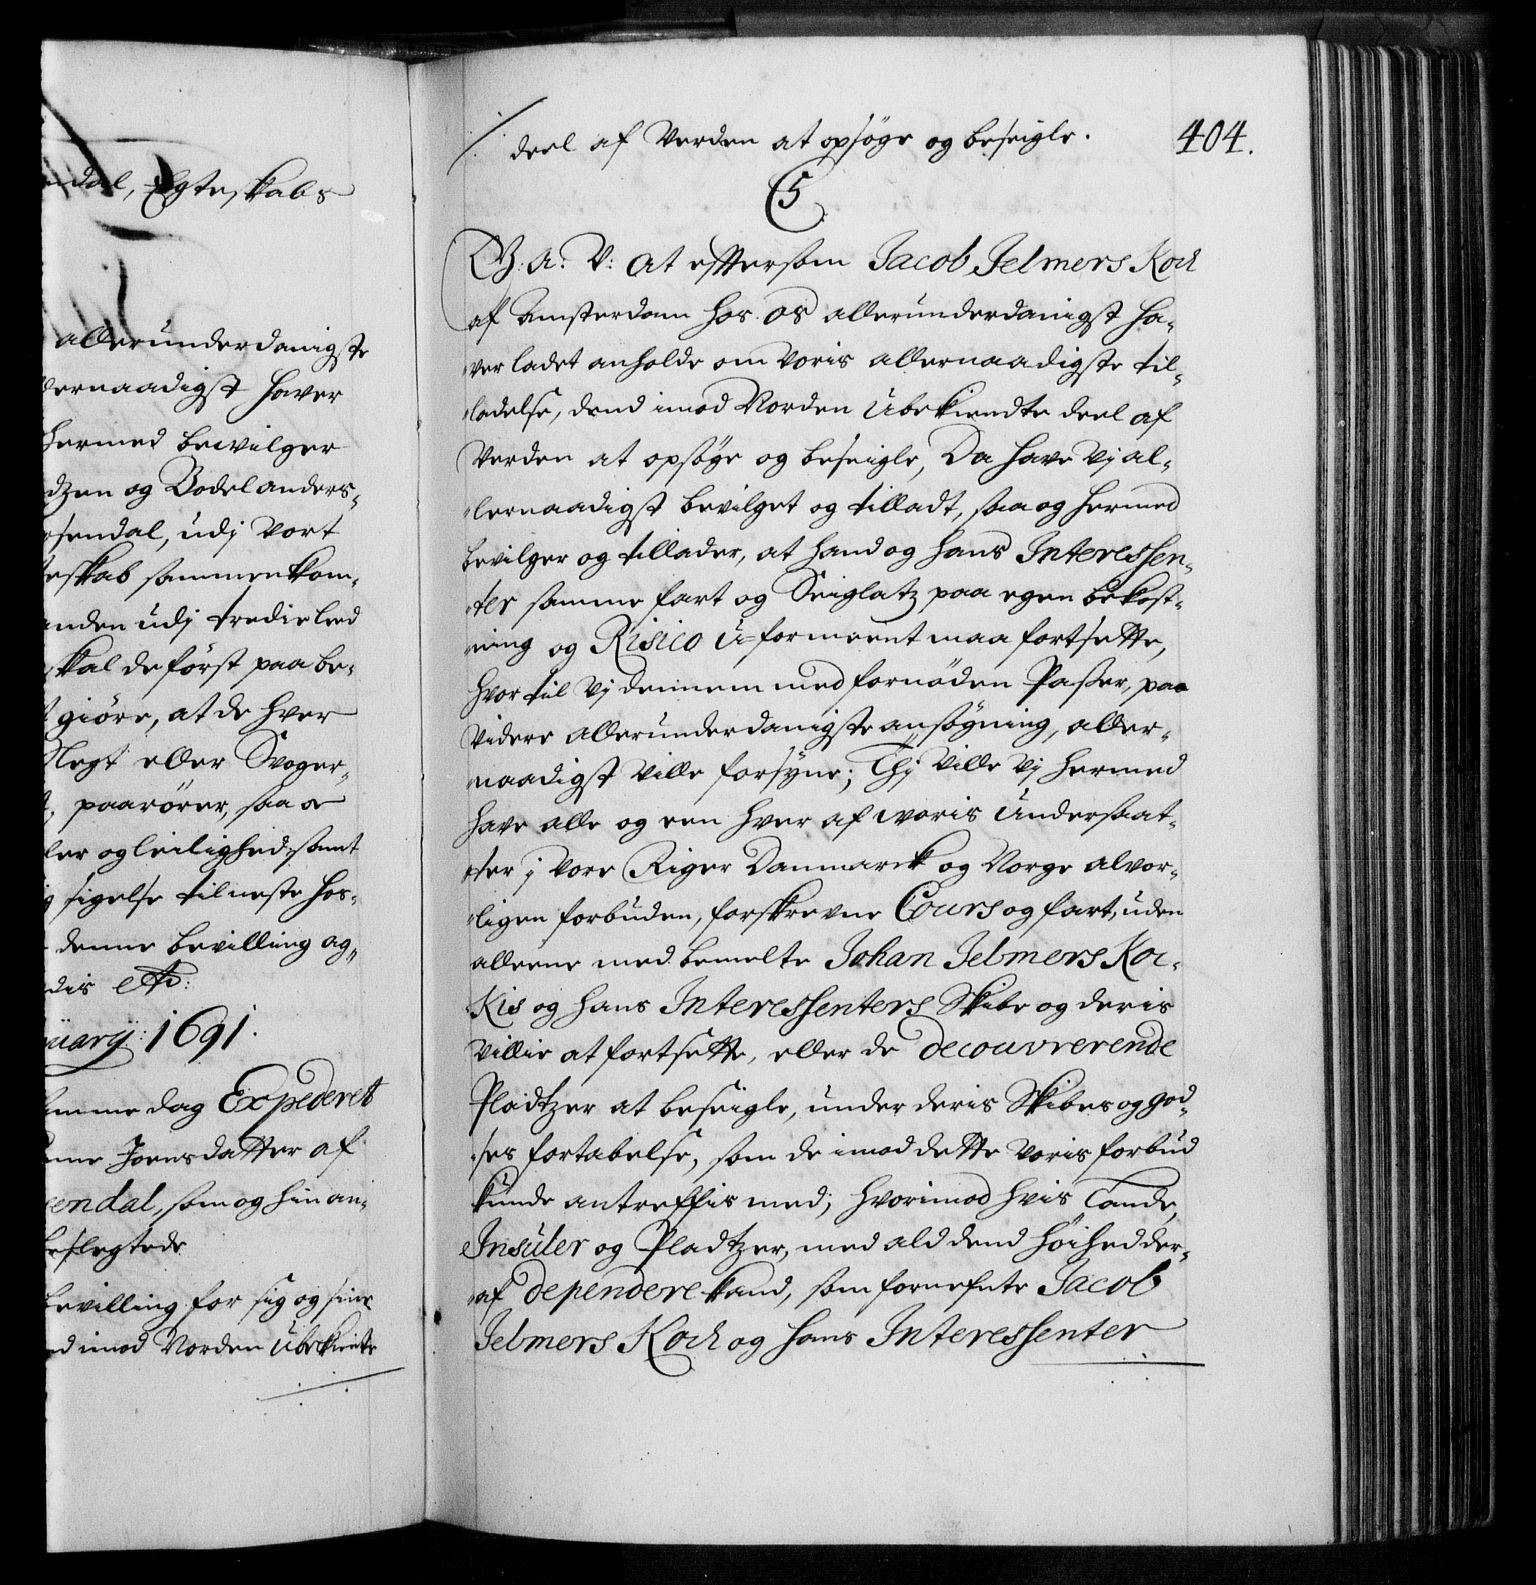 dal, Egteskabs
allerunderdanigste
lernaadigst haver
hermed bewilger
dzen og Bodel anders-
osendal, udj Vort
teskab sammenkom-
anden udj tredie leed
skal de först paa be-
t giöre, at de hver
Slegt eller Svoger-
t, paarörer, saa
ler og leilighed, samt
g sigelse til neste hos-
denne bevilling ag-
dis etc:
uarij 1691.
amme dag Expederet
nne Joensdatter af
sendal, som og hinan-
beslegtede
bevilling for sig og sine
d imod Norden Ubekiente
404.
deel af Verden at opsöge og beseigle.
C5
G. A: V: at eftersom Jacob Jelmers Koch
af Amsterdam hos os allerunderdanigst ha-
ver ladet anholde om Voris allernaadigste til-
ladelse, dend imod Norden Ubekiendte deel af
Verden at opsöge og beseigle, Da have Vj al-
lernaadigst bevilget og tilladt, saa og hermed
bevilger og tillader, at hand og hans Interessen-
ter samme fart og Seiglatz paa egen bekost-
ning og Risico U-formeent maa fortsette,
hvor til Vj dennem med fornöden Passer, paa
Videre allerunderdanigste ansögning, aller-
naadigst Ville forsyne; Thj Ville Vj hermed
have alle og een hver af Woris Undersaat-
ter j Vore Riger Danmarck og Norge alvor-
ligen forbuden, forskrevne Cours og fart, uden
alleene med bemelte Johan Jelmers Koc-
Kis og hans Interessenters Skibe og deris
Villie at fortsette, eller de decouvrerende
Pladtzer at beseigle, under deris Skibes og god-
ses fortabelse, som de imod dette Voris forbud
kunde antreffis med; hvorimod hvis Lande,
Insuler og Pladtzer, med ald dend höihed der-
af dependere kand, som fornefnte Jacob
Jelmers Koch og hans Interessenter